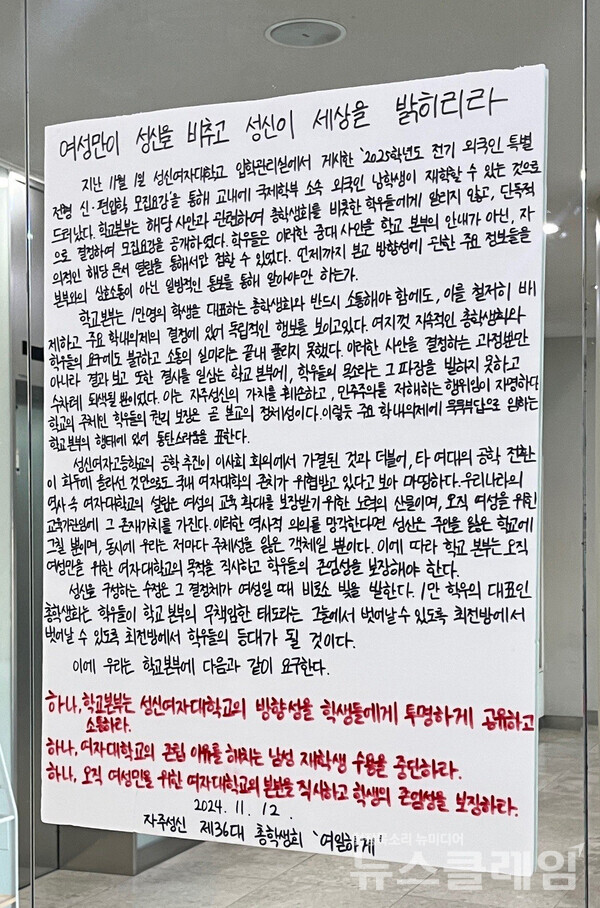 여성만이 성신을 비추고 성신이 세상을 밝히리라
지난 11월 1일 성신여자대학교 입학관리실에서 게시한 '2025학년도 전기 외국인 특별
전형 신·편입학 모집요강'을 통해 교내에 국제학부 소속 외국인 남학생이 재학할 수 있는 것으로
드러났다. 학교본부는 해당 사안과 관련하여 총학생회를 비롯한 학우들에게 알리지 않고, 단독적
으로 결정하여 모집요강을 공개하였다. 학우들은 이러한 중대 사안을 학교 본부의 안내가 아닌, 자
의적인 해당 문서 열람을 통해서만 접할 수 있었다. 언제까지 본교 방향성에 관한 주요 정보들을
본부와의 상호소통이 아닌 일방적인 통보를 통해 알아야만 하는가.
학교본부는 1만명의 학생을 대표하는 총학생회와 반드시 소통해야 함에도, 이를 철저히 배
제하고 주요 학내의제의 결정에 있어 독립적인 행보를 보이고있다. 여지껏 지속적인 총학생회와
학우들의 요구에도 불구하고 소통의 실마리는 끝내 풀리지 못했다. 이러한 사안을 결정하는 과정뿐만
아니라 결과 보고 또한 결시를 일삼는 학교 본부에, 학우들의 목소리는 그 파장을 발하지 못하고
수차례 퇴색될 뿐이었다. 이는 자주성신의 가치를 훼손하고, 민주주의를 저해하는 행위임이 자명하다.
학교의 주체인 학우들의 권리 보장은 곧 본교의 정체성이다. 이렇듯 주요 학내의제에 묵묵부답으로 임하는
학교본부의 행태에 있어 통탄스러움을 표한다.
성신여자고등학교의 공학 추진이 이사회 회의에서 가결된 것과 더불어, 타 여대의 공학 전환
이 화두에 올라선 것만으로도 국내 여자대학의 존치가 위협받고 있다고 보아 마땅하다. 우리나라의
역사 속 여자대학교의 설립은 여성의 교육 확대를 보장받기 위한 노력의 산물이며, 오직 여성을 위한
교육기관임에 그 존재가치를 가진다. 이러한 역사적 의의를 망각한다면 성신은 주인을 잃은 학교에
그칠 뿐이며, 동시에 우리는 저마다 주체성을 잃은 객체일 뿐이다. 이에 따라 학교 본부는 오직
여성만을 위한 여자대학교의 목적을 직시하고 학우들의 존엄성을 보장해야 한다.
성신을 구성하는 수정은 그 결정체가 여성일 때 비로소 빛을 발한다. 1만 학우의 대표인
총학생회는 학우들이 학교 본부의 무책임한 태도라는 그늘에서 벗어날 수 있도록 최전방에서
벗어날 수 있도록 최전방에서 학우들의 등대가 될 것이다.
이에 우리는 학교본부에 다음과 같이 요구한다.
하나, 학교본부는 성신여자대학교의 방향성을 학생들에게 투명하게 공유하고
소통하라.
하나, 여자대학교의 존립 이유를 해치는 남성 재학생 수용을 중단하라.
하나, 오직 여성만을 위한 여자대학교의 본분을 직시하고 학생의 존엄성을 보장하라.
2024. 11. 12.
자주성신 제36대 총학생회 '여일하게'
뉴스클레임